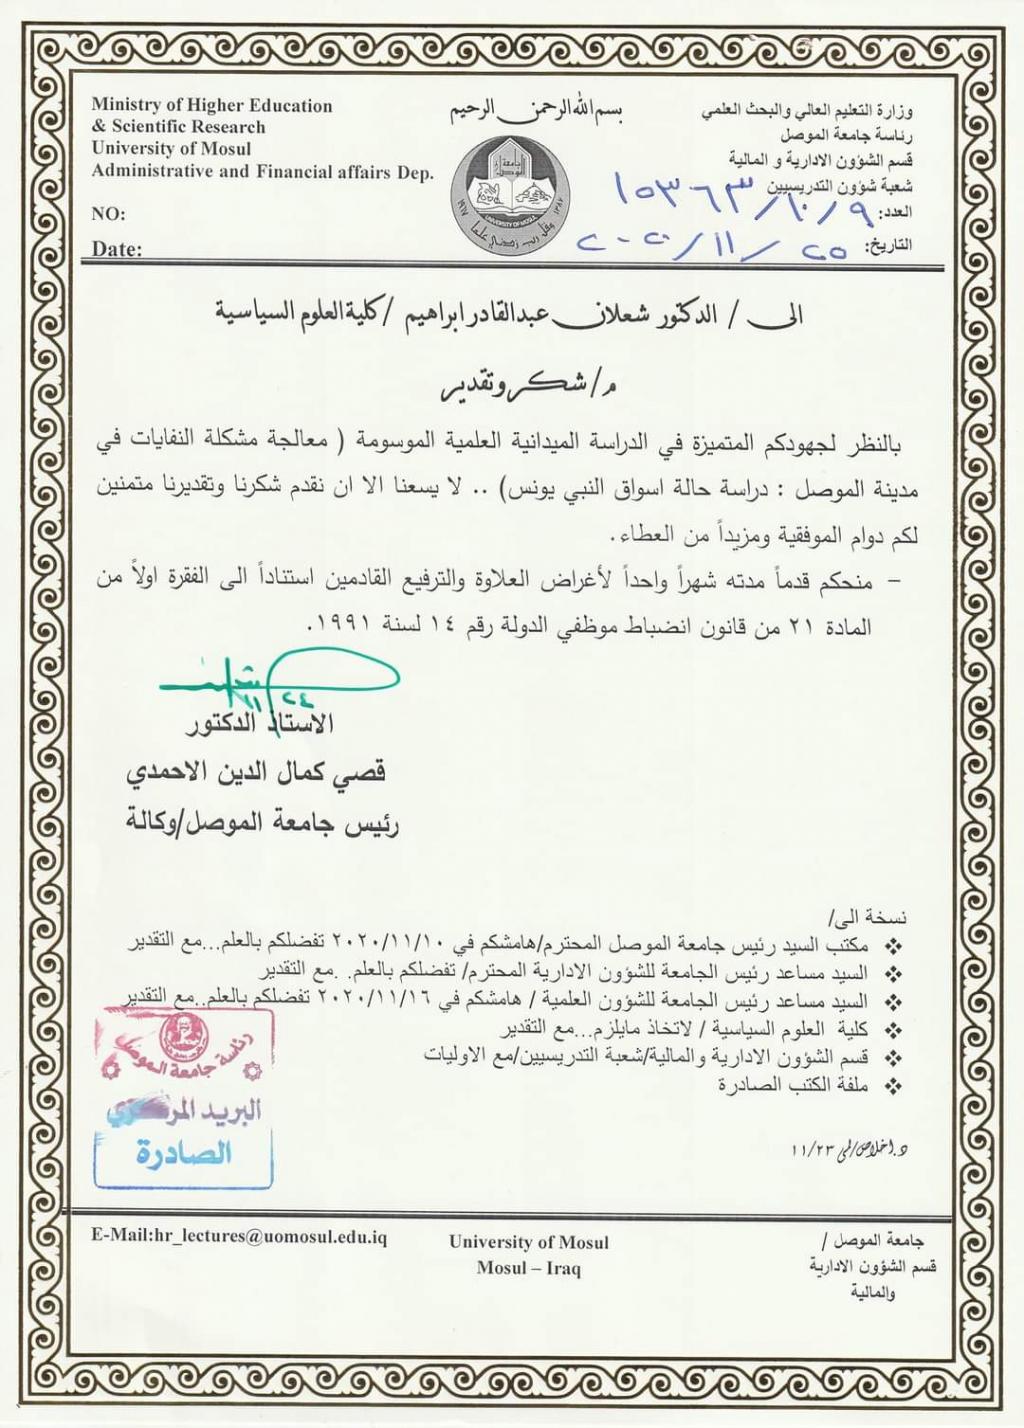 Ministry of Higher Education
& Scientific Research
University of Mosul
Administrative and Financial affairs Dep.
NO:
Date:
بسم الله الرحمن الرحيم
UNIVERSITY OF MOSUL
وقل رب زدني علما
وزارة التعليم العالي والبحث العلمي
رئاسة جامعة الموصل
قسم الشؤون الادارية و المالية
شعبة شؤون التدريسيين
العدد: ٩/١٠/١٥٣٦٣
التاريخ: ٢٥/١١/٢٠٢٠
الى / الدكتور شعلان عبدالقادر ابراهيم /كلية العلوم السياسية
م/ شكر وتقدير
بالنظر لجهودكم المتميزة في الدراسة الميدانية العلمية الموسومة ( معالجة مشكلة النفايات في
مدينة الموصل : دراسة حالة اسواق النبي يونس) .. لا يسعنا الا ان نقدم شكرنا وتقديرنا متمنين
لكم دوام الموفقية ومزيداً من العطاء.
– منحكم قدماً مدته شهراً واحداً لأغراض العلاوة والترفيع القادمين استناداً الى الفقرة اولاً من
المادة ٢١ من قانون انضباط موظفي الدولة رقم ١٤ لسنة ١٩٩١.
١١/٢٤
الاستاذ الدكتور
قصي كمال الدين الاحمدي
رئيس جامعة الموصل/وكالة
نسخة الى/
❖ مكتب السيد رئيس جامعة الموصل المحترم/هامشكم في ٢٠٢٠/١١/١٠ تفضلكم بالعلم...مع التقدير
❖ السيد مساعد رئيس الجامعة للشؤون الادارية المحترم/ تفضلكم بالعلم. .مع التقدير
❖ السيد مساعد رئيس الجامعة للشؤون العلمية / هامشكم في ٢٠٢٠/١١/١٦ تفضلكم بالعلم..مع التقدير
❖ كلية العلوم السياسية / لاتخاذ مايلزم...مع التقدير
❖ قسم الشؤون الادارية والمالية/شعبة التدريسيين/مع الاوليات
❖ ملفة الكتب الصادرة
رئاسة جامعة الموصل
البريد المركزي
الصادرة
د.اخلاص/لمى ١١/٢٣
E-Mail:hr_lectures@uomosul.edu.iq
University of Mosul
Mosul – Iraq
جامعة الموصل /
قسم الشؤون الادارية
والمالية